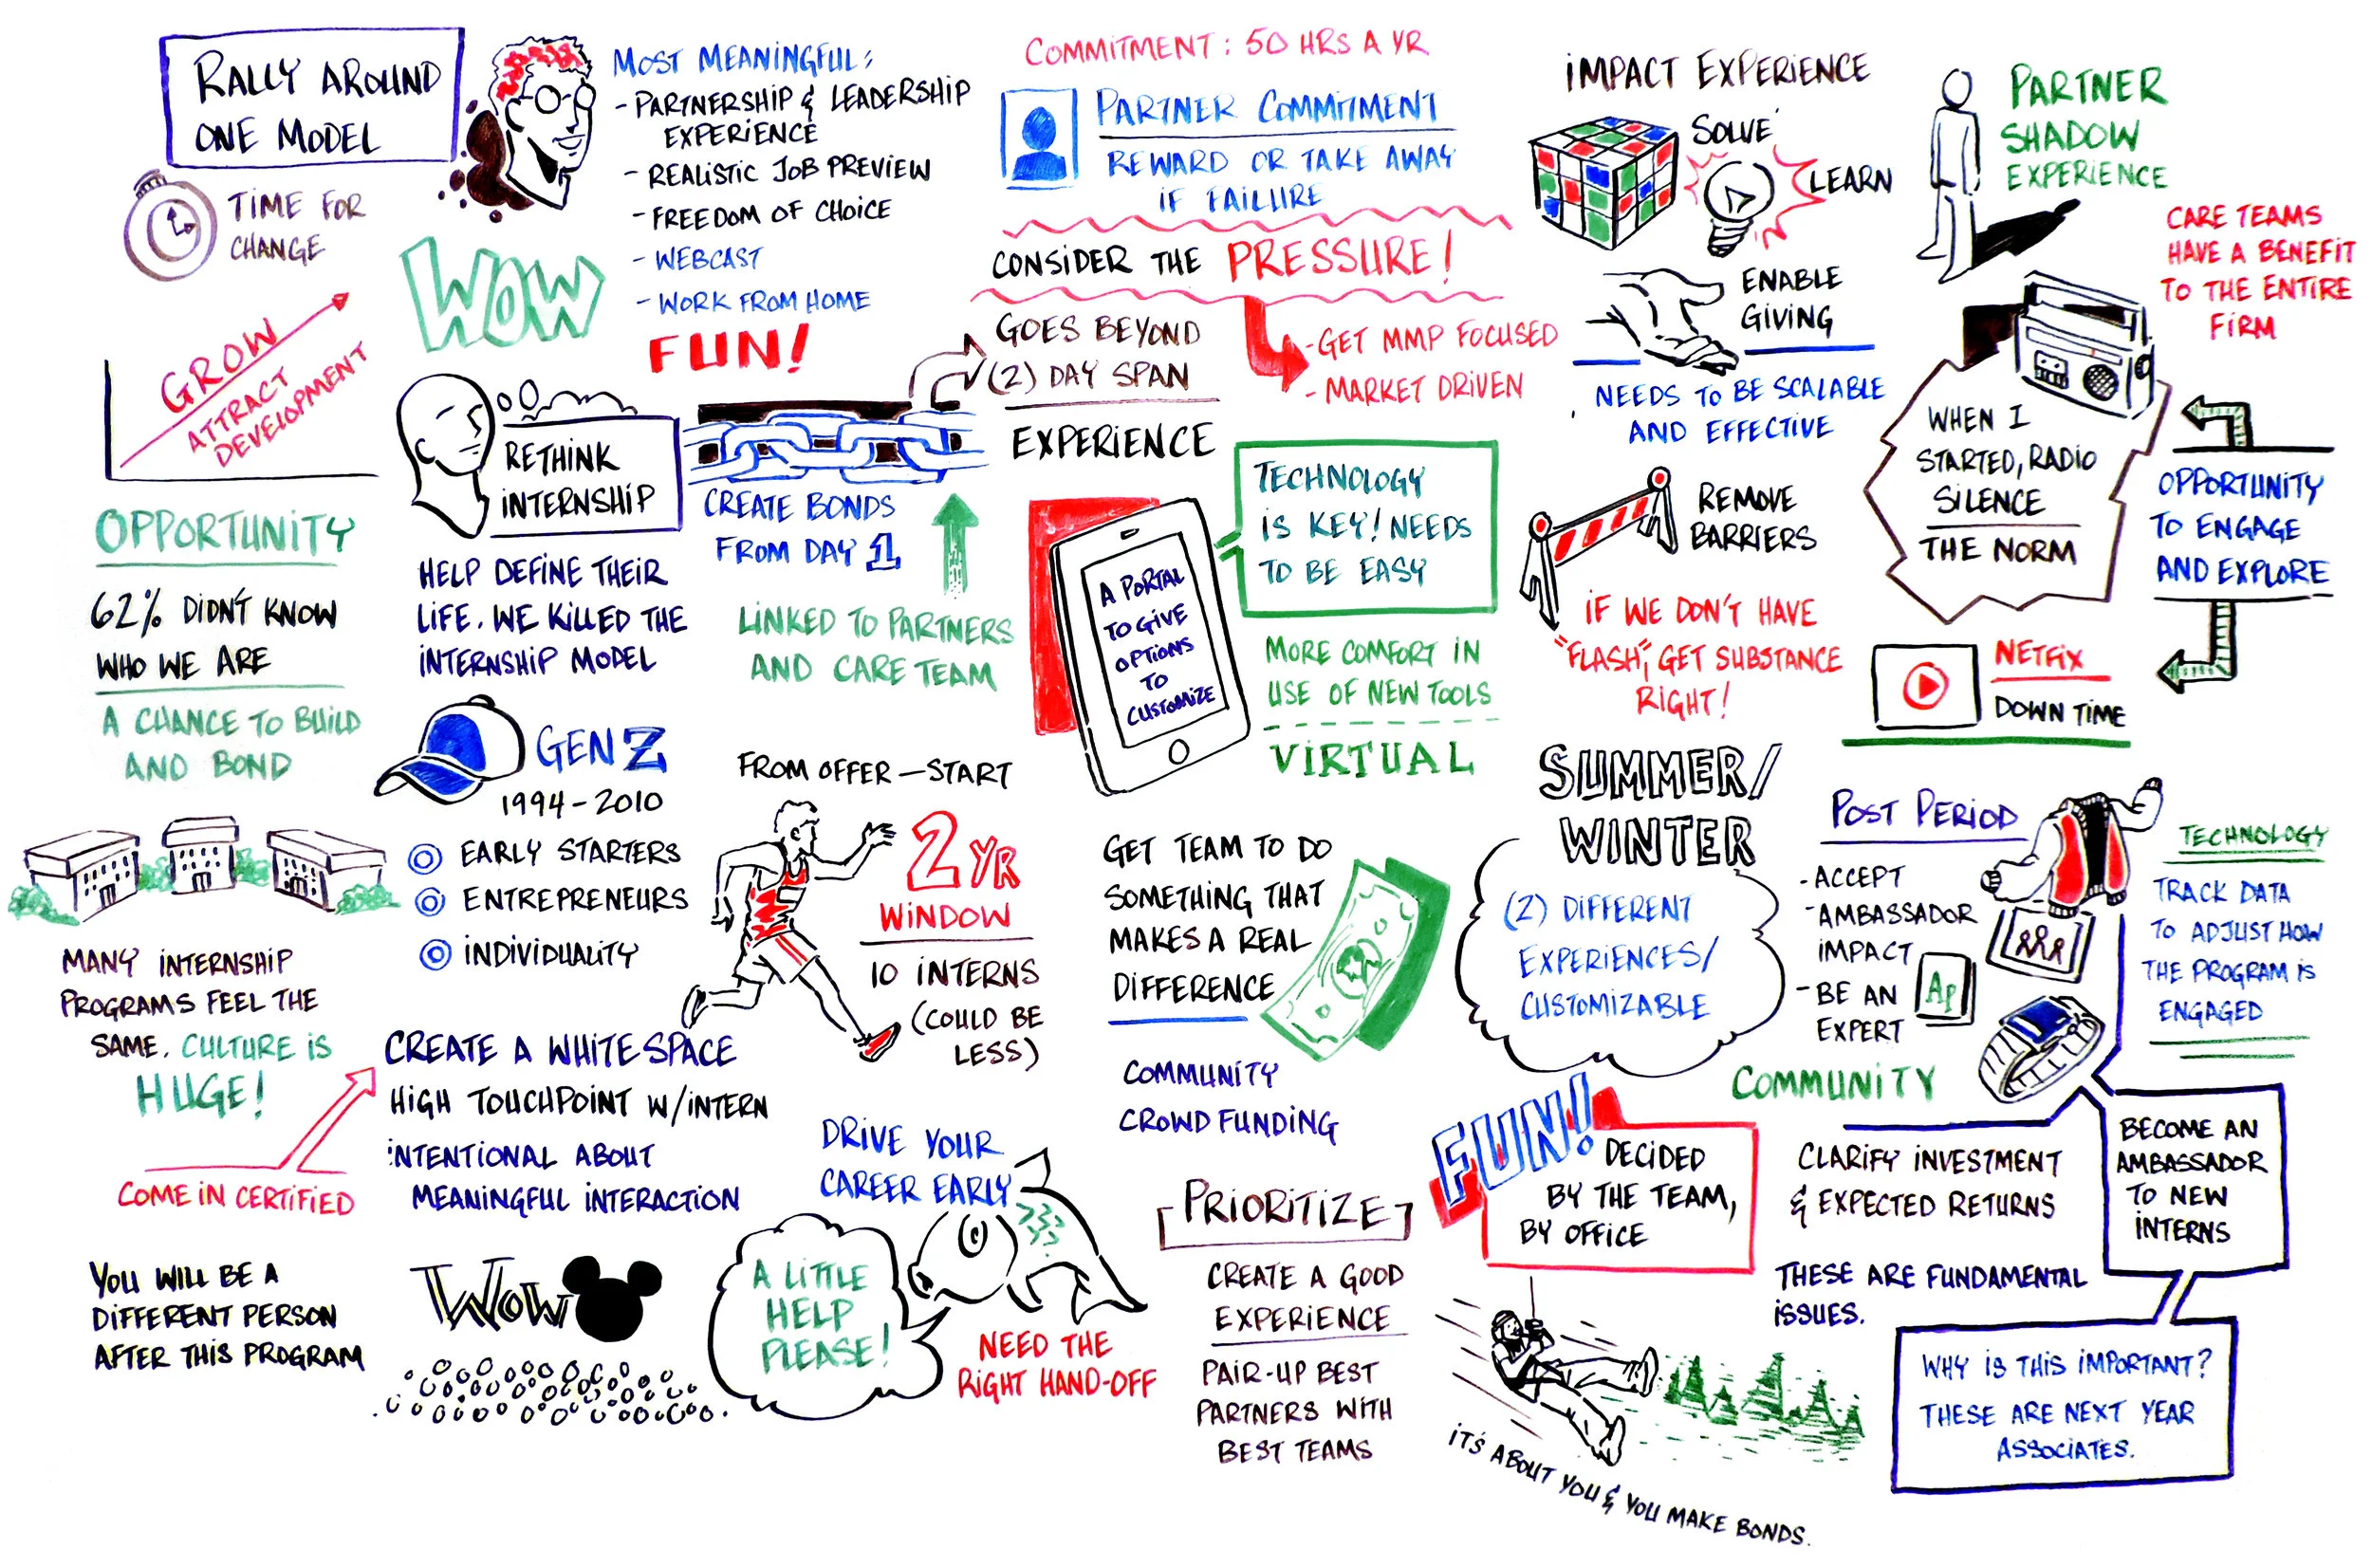 RALLY AROUND
ONE MODEL
TIME FOR
CHANGE
GROW
ATTRACT
DEVELOPMENT
OPPORTUNITY
62% DIDN'T KNOW
WHO WE ARE
A CHANCE TO BUILD
AND BOND
MANY INTERNSHIP
PROGRAMS FEEL THE
SAME. CULTURE IS
HUGE!
COME IN CERTIFIED
YOU WILL BE A
DIFFERENT PERSON
AFTER THIS PROGRAM
MOST MEANINGFUL:
- PARTNERSHIP & LEADERSHIP
EXPERIENCE
- REALISTIC JOB PREVIEW
- FREEDOM OF CHOICE
- WEBCAST
- WORK FROM HOME
WOW
FUN!
RETHINK
INTERNSHIP
HELP DEFINE THEIR
LIFE. WE KILLED THE
INTERNSHIP MODEL
GEN Z
1994-2010
EARLY STARTERS
ENTREPRENEURS
INDIVIDUALITY
CREATE A WHITE SPACE
HIGH TOUCHPOINT W/INTERN
INTENTIONAL ABOUT
MEANINGFUL INTERACTION
WOW
GOES BEYOND
(2) DAY SPAN
EXPERIENCE
CREATE BONDS
FROM DAY 1
LINKED TO PARTNERS
AND CARE TEAM
FROM OFFER-START
2 YR
WINDOW
10 INTERNS
(COULD BE
LESS)
DRIVE YOUR
CAREER EARLY
A LITTLE
HELP
PLEASE!
NEED THE
RIGHT HAND-OFF
COMMITMENT: 50 HRS A YR
PARTNER COMMITMENT
REWARD OR TAKE AWAY
IF FAILURE
CONSIDER THE PRESSURE!
- GET MMP FOCUSED
- MARKET DRIVEN
TECHNOLOGY
IS KEY! NEEDS
TO BE EASY
A PORTAL
TO GIVE
OPTIONS
TO
CUSTOMIZE
MORE COMFORT IN
USE OF NEW TOOLS
VIRTUAL
GET TEAM TO DO
SOMETHING THAT
MAKES A REAL
DIFFERENCE
COMMUNITY
CROWD FUNDING
PRIORITIZE
CREATE A GOOD
EXPERIENCE
PAIR-UP BEST
PARTNERS WITH
BEST TEAMS
IMPACT EXPERIENCE
SOLVE
LEARN
ENABLE
GIVING
NEEDS TO BE SCALABLE
AND EFFECTIVE
REMOVE
BARRIERS
IF WE DON'T HAVE
"FLASH", GET SUBSTANCE
RIGHT!
SUMMER/
WINTER
(2) DIFFERENT
EXPERIENCES/
CUSTOMIZABLE
FUN!
DECIDED
BY THE TEAM,
BY OFFICE
IT'S ABOUT YOU & YOU MAKE BONDS.
PARTNER
SHADOW
EXPERIENCE
CARE TEAMS
HAVE A BENEFIT
TO THE ENTIRE
FIRM
WHEN I
STARTED, RADIO
SILENCE
THE NORM
OPPORTUNITY
TO ENGAGE
AND EXPLORE
NETFIX
DOWN TIME
POST PERIOD
- ACCEPT
- AMBASSADOR
IMPACT
- BE AN
EXPERT
Ap
TECHNOLOGY
TRACK DATA
TO ADJUST HOW
THE PROGRAM IS
ENGAGED
COMMUNITY
CLARIFY INVESTMENT
& EXPECTED RETURNS
THESE ARE FUNDAMENTAL
ISSUES.
BECOME AN
AMBASSADOR
TO NEW
INTERNS
WHY IS THIS IMPORTANT?
THESE ARE NEXT YEAR
ASSOCIATES.